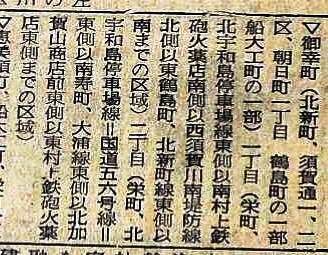 ▽御幸町(北新町、須賀通一、二
区、朝日町一丁目 鶴島町の一部
船大工町の一部)一丁目(栄町、
北宇和島停車場線東側以南村上鉄
砲火薬店南側以西須賀川南堤防線
北側以東鶴島町、北新町線東側以
南までの区域)二丁目(栄町、北
宇和島停車場線=国道五六号線=
東側以南寿町、大浦線東側以北加
賀山商店前東側以東村上鉄砲火薬
店東側までの区域)